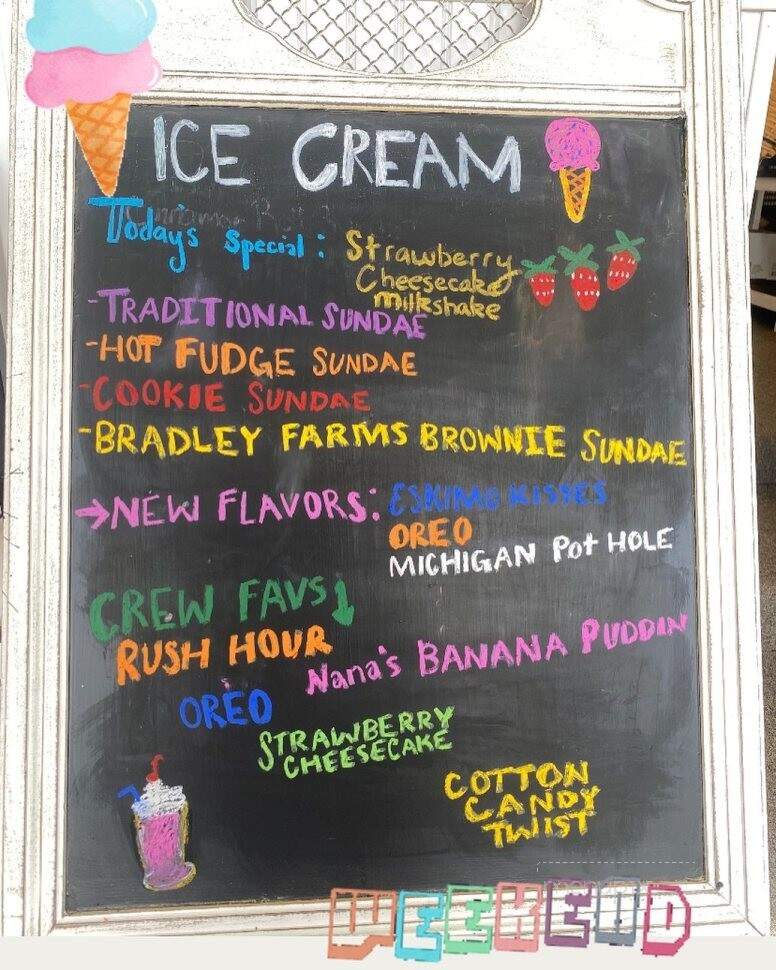 ICE CREAM
Todays Special: Strawberry
Cheesecake
milkshake
-TRADITIONAL SUNDAE
-HOT FUDGE SUNDAE
-COOKIE SUNDAE
-BRADLEY FARMS BROWNIE SUNDAE
→NEW FLAVORS: ESKIMO KISSES
OREO
MICHIGAN Pot HOLE
CREW FAVS↓
RUSH HOUR
Nana's BANANA PUDDIN
OREO
STRAWBERRY
CHEESECAKE
COTTON
CANDY
TWIST
WEEKEND